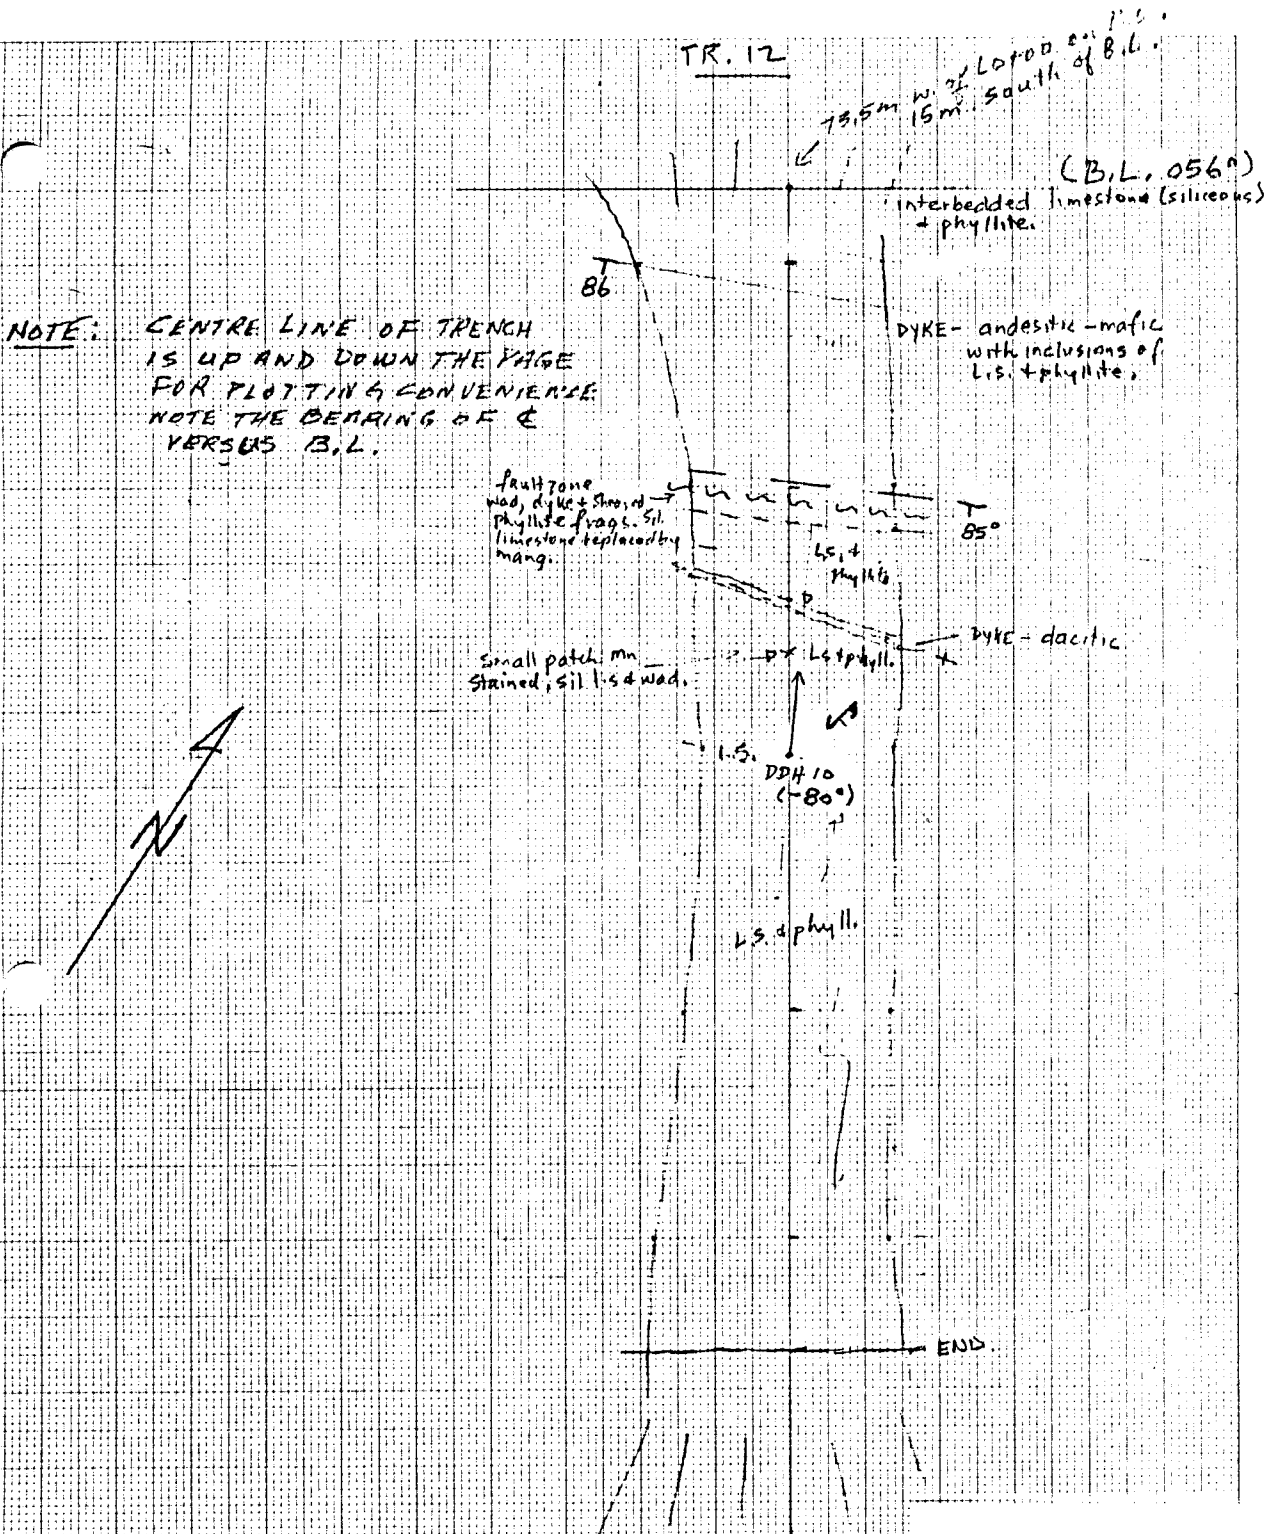 TR. 12
73.5m w. of L0+00 on
15m. south of B.L.
(B.L. 056°)
interbedded limestone (siliceous)
+ phyllite.
86
NOTE: CENTRE LINE OF TRENCH
IS UP AND DOWN THE PAGE
FOR PLOTTING CONVENIENCE
NOTE THE BEARING OF ℄
VERSUS B.L.
DYKE - andesitic - mafic
with inclusions of
L.S. + phyllite.
fault zone
wad, dyke + sheared
phyllite frags. Sil.
limestone replaced by
mang.
85°
L.S. +
phyllite
D
DYKE - dacitic
small patch Mn
stained, sil l.s. & wad.
D
L.S + phyll.
L.S.
DDH 10
(-80°)
N
L.S. & phyll.
END.